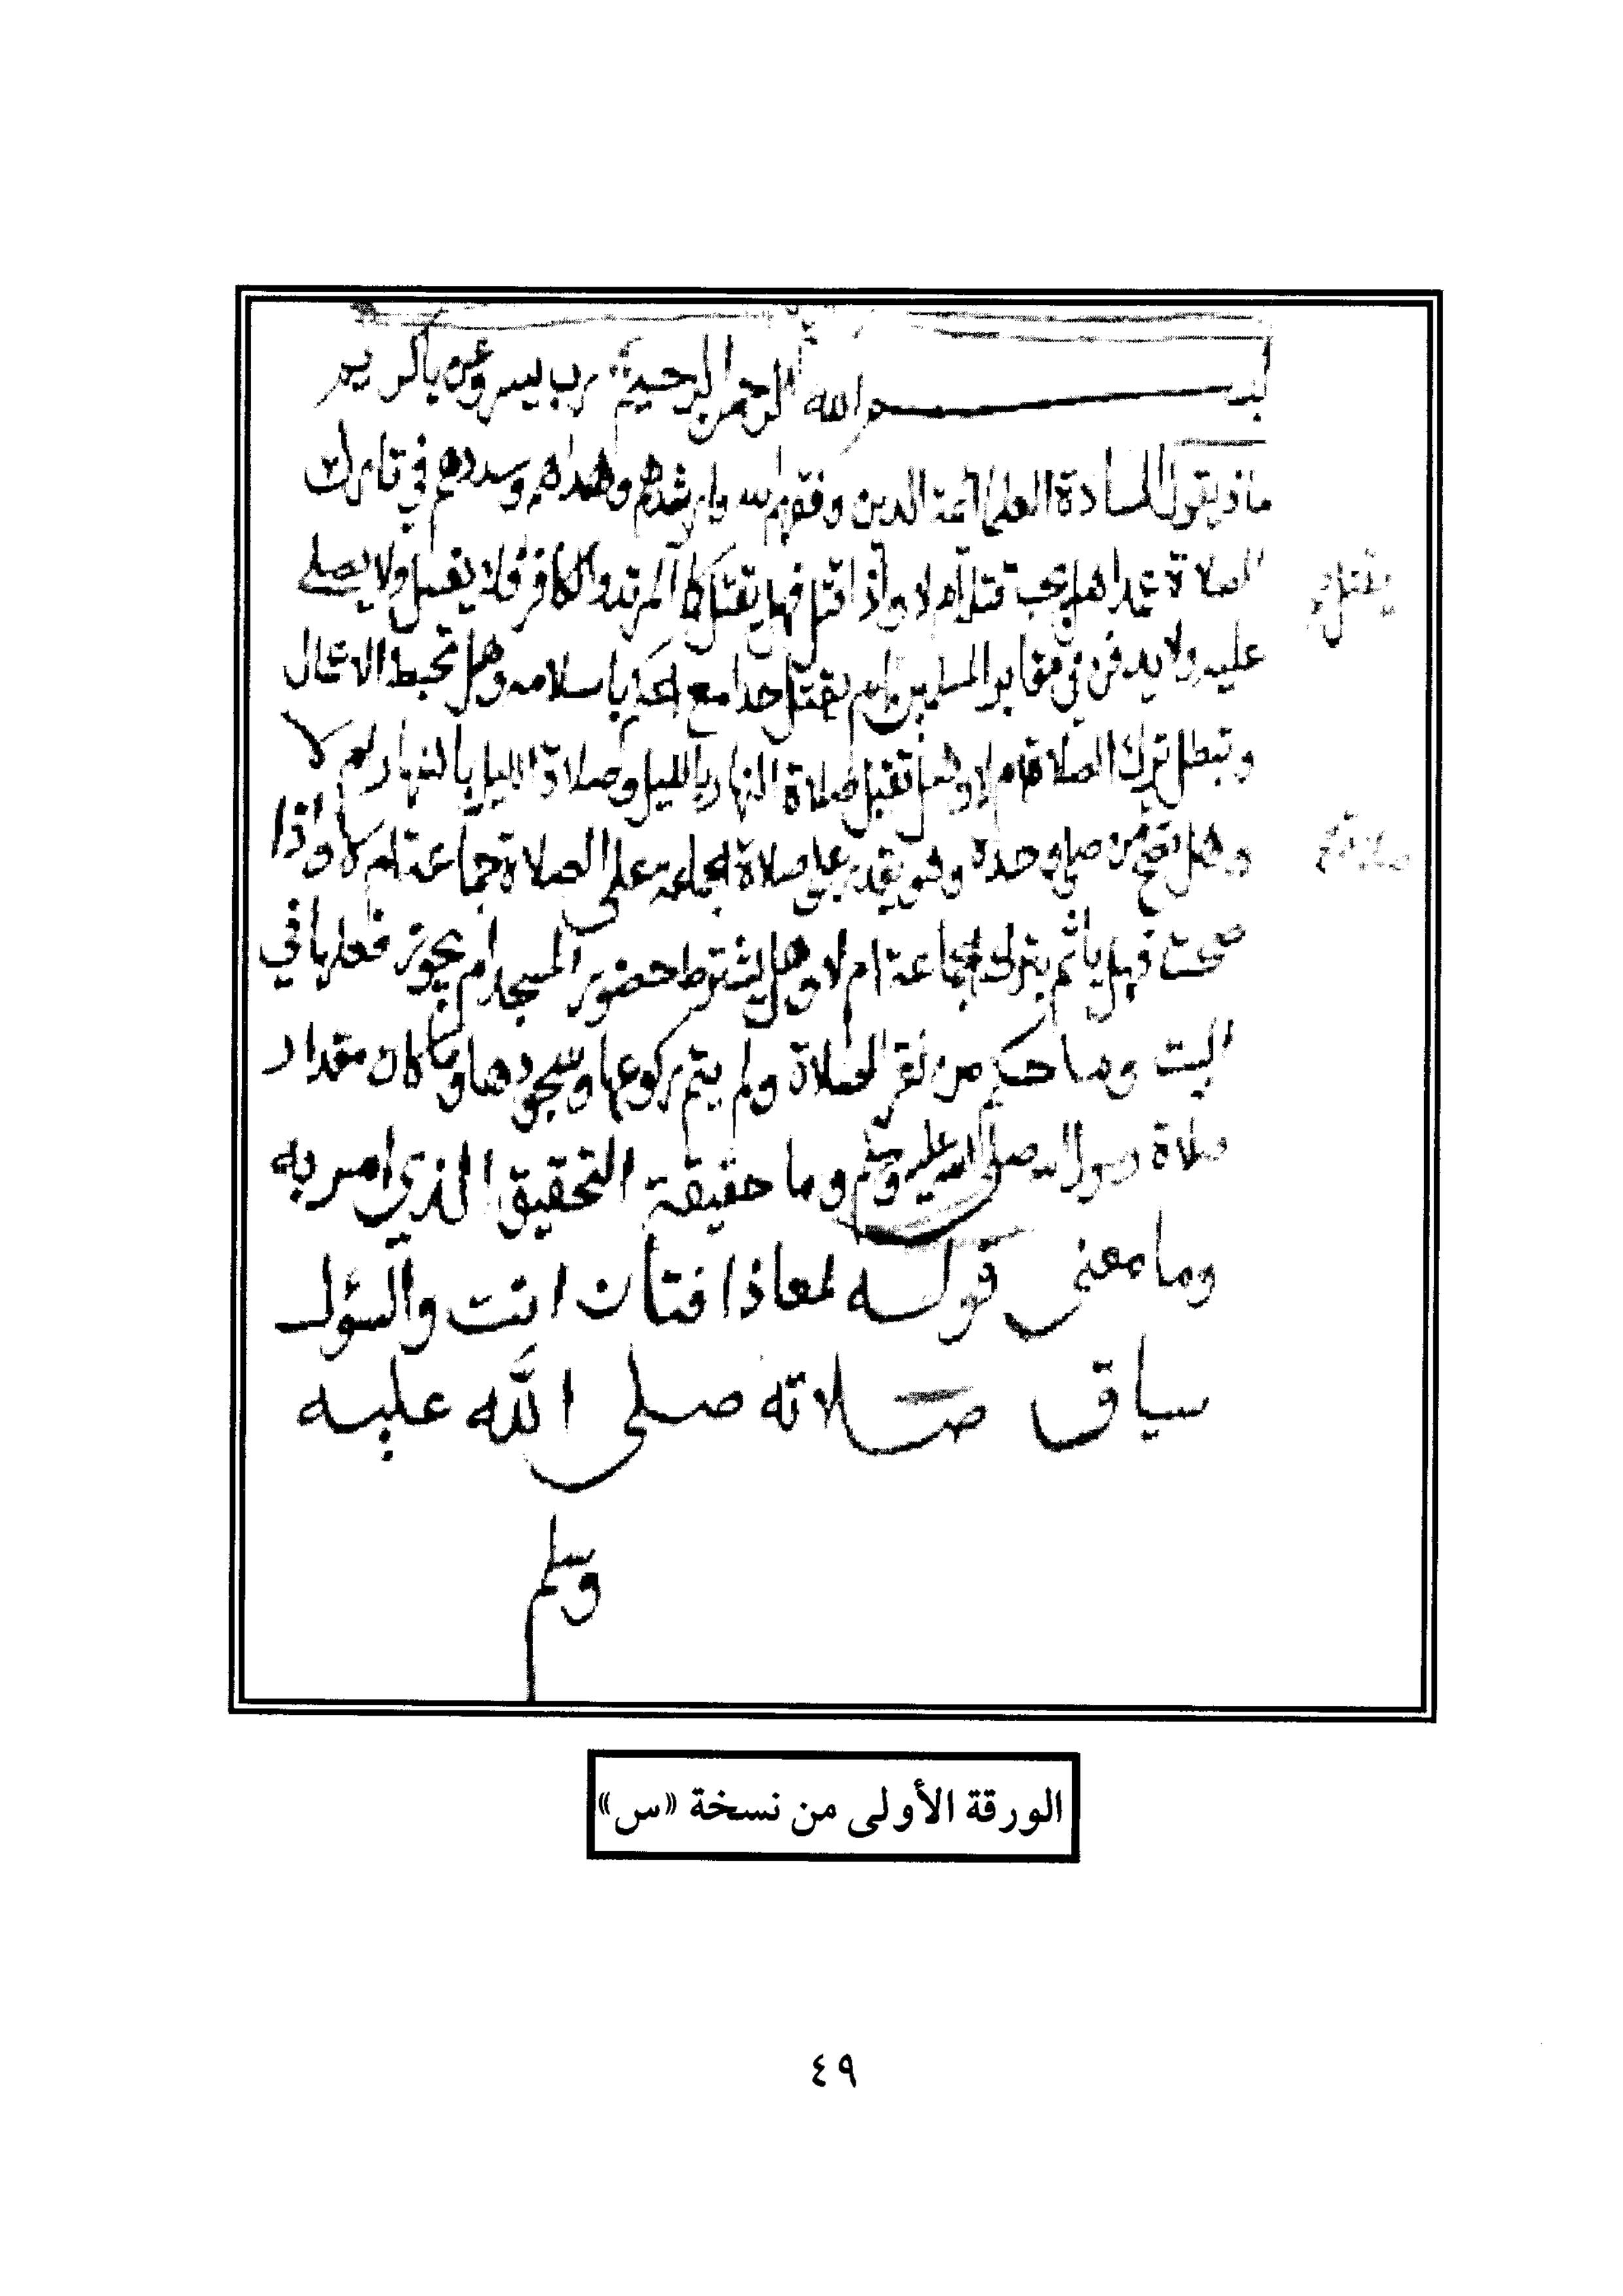 بسم الله الرحمن الرحيم رب يسر وعن ياكريم
ماذ يقول السادة العلما ائمة الدين وفقهم الله وارشدهم وهداهم وسددهم في تارك
الصلاة عمدا هل يجب قتله ام لا واذا قتل فهل يقتل كما المرتد والكافر فلا يغسل ولا يصلى
عليه ولا يدفن في مقابر المسلمين ام يقتل حدا مع الحكم باسلامه وهل تحبط الاعمال
وتبطل بترك الصلاة ام لا وهل تقبل صلاة النهار بالليل وصلاة الليل بالنهار ام لا
وهل تصح من صلى وحده وهو يقدر على صلاة الجماعة على الصلاة جماعة ام لا واذا
صحت فهل ياثم بترك الجماعة ام لا وهل يشترط حضور المسجد ام يجوز فعلها في
البيت وما حكم من نقر الصلاة ولم يتم ركوعها وسجودها وما كان مقدار
صلاة رسول الله صلى الله عليه وسلم وما حقيقة التحقيق الذي امر به
وما معنى قوله لمعاذ افتان انت والسؤل
سياق صلاته صلى الله عليه
وسلم
يقتل
صلاة
الورقة الأولى من نسخة «س»
٤٩